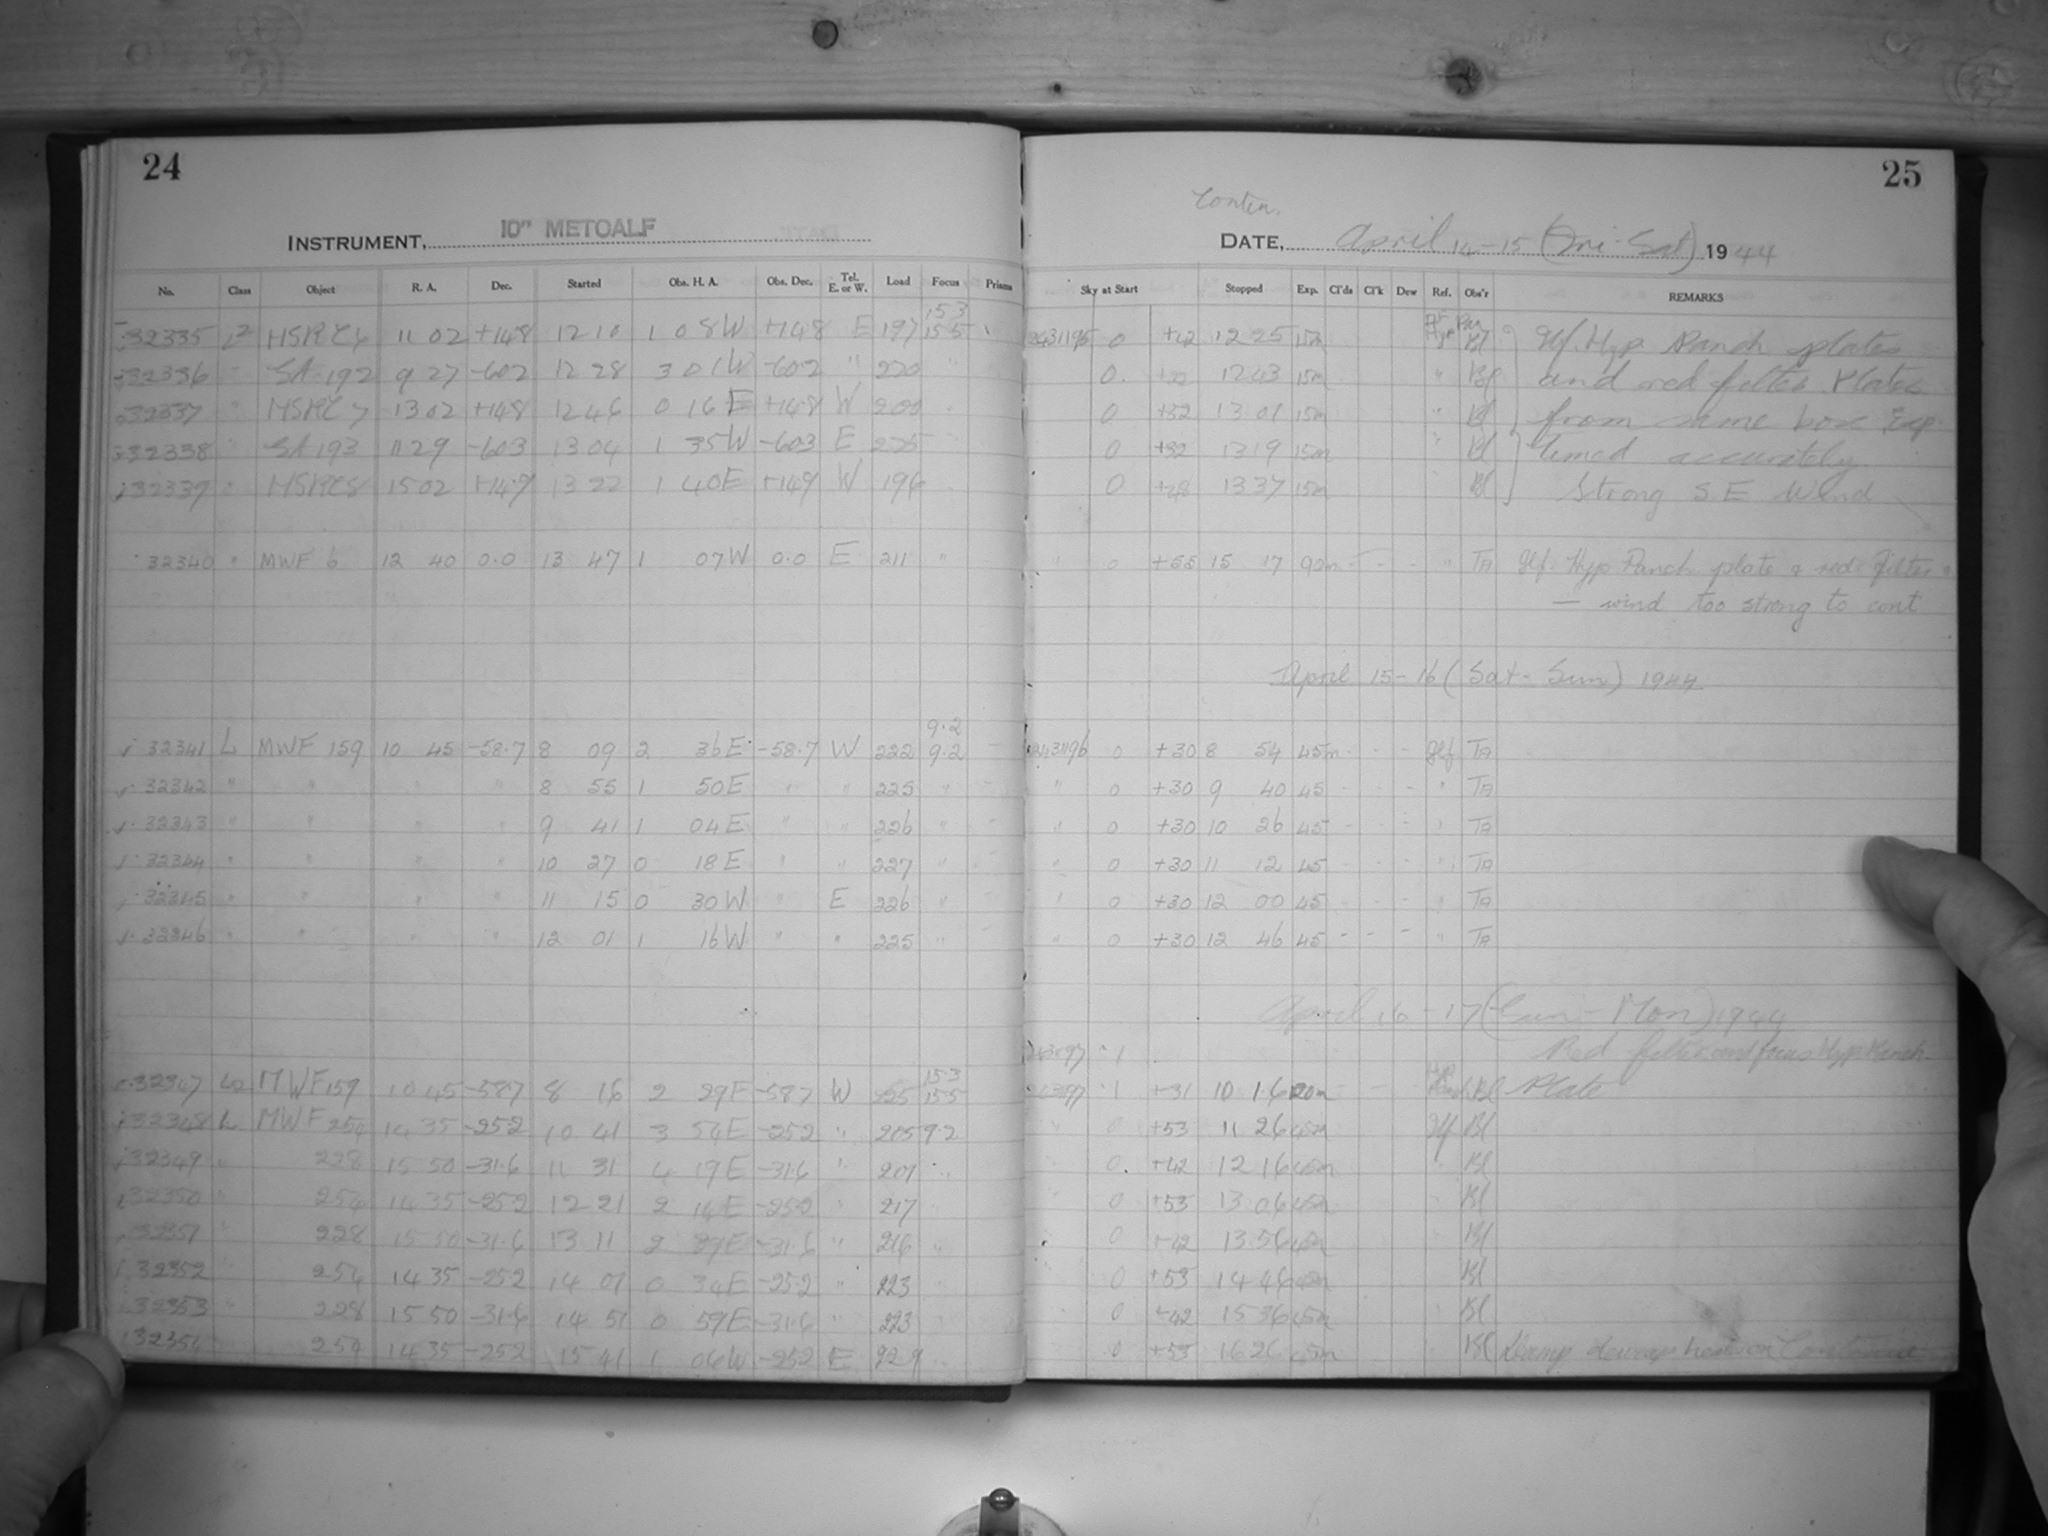 24
INSTRUMENT, 10" METCALF
No. Class Object R. A. Dec. Started Obs. H. A. Obs. Dec. Tel. E. or W. Load Focus Prisms
15.3
32335 L2 11 02 +14.8 12 10 1 08W +14.8 E 197 15.5
32336 " SA 192 9 27 -60.2 12 28 3 01W -60.2 " 220 "
32337 " 13 02 +14.8 12 46 0 16E +14.8 W 200
32338 " SA 193 11 29 -60.3 13 04 1 35W -60.3 E 225
32339 15 02 +14.9 13 22 1 40E +14.9 W 196
32340 " MWF 6 12 40 0.0 13 47 1 07W 0.0 E 211 "
9.2
32341 L MWF 159 10 45 -58.7 8 09 2 36E -58.7 W 222 9.2 -
32342 " " " " 8 55 1 50E " " 225 " -
32343 " " " " 9 41 1 04E " " 226 " -
32344 " " " " 10 27 0 18E " " 227 " -
32345 " " " " 11 15 0 30W " E 226 " -
32346 " " " " 12 01 1 16W " " 225 " -
15.3
32347 L2 MWF 159 10 45 -58.7 8 16 2 29E -58.7 W 225 15.5
32348 L MWF 254 14 35 -25.2 10 41 3 54E -25.2 " 205 9.2
32349 " 228 15 50 -31.6 11 31 4 19E -31.6 " 207 "
32350 " 254 14 35 -25.2 12 21 2 14E -25.2 " 217
32351 " 228 15 50 -31.6 13 11 2 39E -31.6 " 216 "
32352 " 254 14 35 -25.2 14 01 0 34E -25.2 " 223
32353 " 228 15 50 -31.6 14 51 0 59E -31.6 " 223
32354 254 14 35 -25.2 15 41 1 06W -25.2 E 229
25
Contin.
DATE, April 14-15 (Fri-Sat) 1944
Sky at Start Stopped Exp. Cl'ds Cl'k Dew Ref. Obs'r REMARKS
2431195 0 +42 12 25 15m Bl Hyp Panch plates
0 12 43 15m " Bl and red filter. Plates
0 +32 13 01 15m " Bl from same box. Exp.
0 +32 13 19 15m " Bl timed accurately
0 +28 13 37 15m Bl Strong S.E Wind
" 0 +55 15 17 90m - - - " TA Hyp Panch plate & red filter
— wind too strong to cont
April 15-16 (Sat-Sun) 1944
2431196 0 +30 8 54 45m - - - TA
" 0 +30 9 40 45 - - - " TA
" 0 +30 10 26 45 - - - " TA
" 0 +30 11 12 45 - - - " TA
" 0 +30 12 00 45 - - - " TA
" 0 +30 12 46 45 - - - " TA
April 16-17 (Sun-Mon) 1944
Red filter and focus Hyp Panch
1 +31 10 16 120m Bl Plate
0 +53 11 26 45m Bl
0 +42 12 16 45m Bl
0 +53 13 06 45m Bl
0 +42 13 56 45m Bl
0 +53 14 46 45m Bl
0 +42 15 36 45m Bl
0 +53 16 26 45m Bl